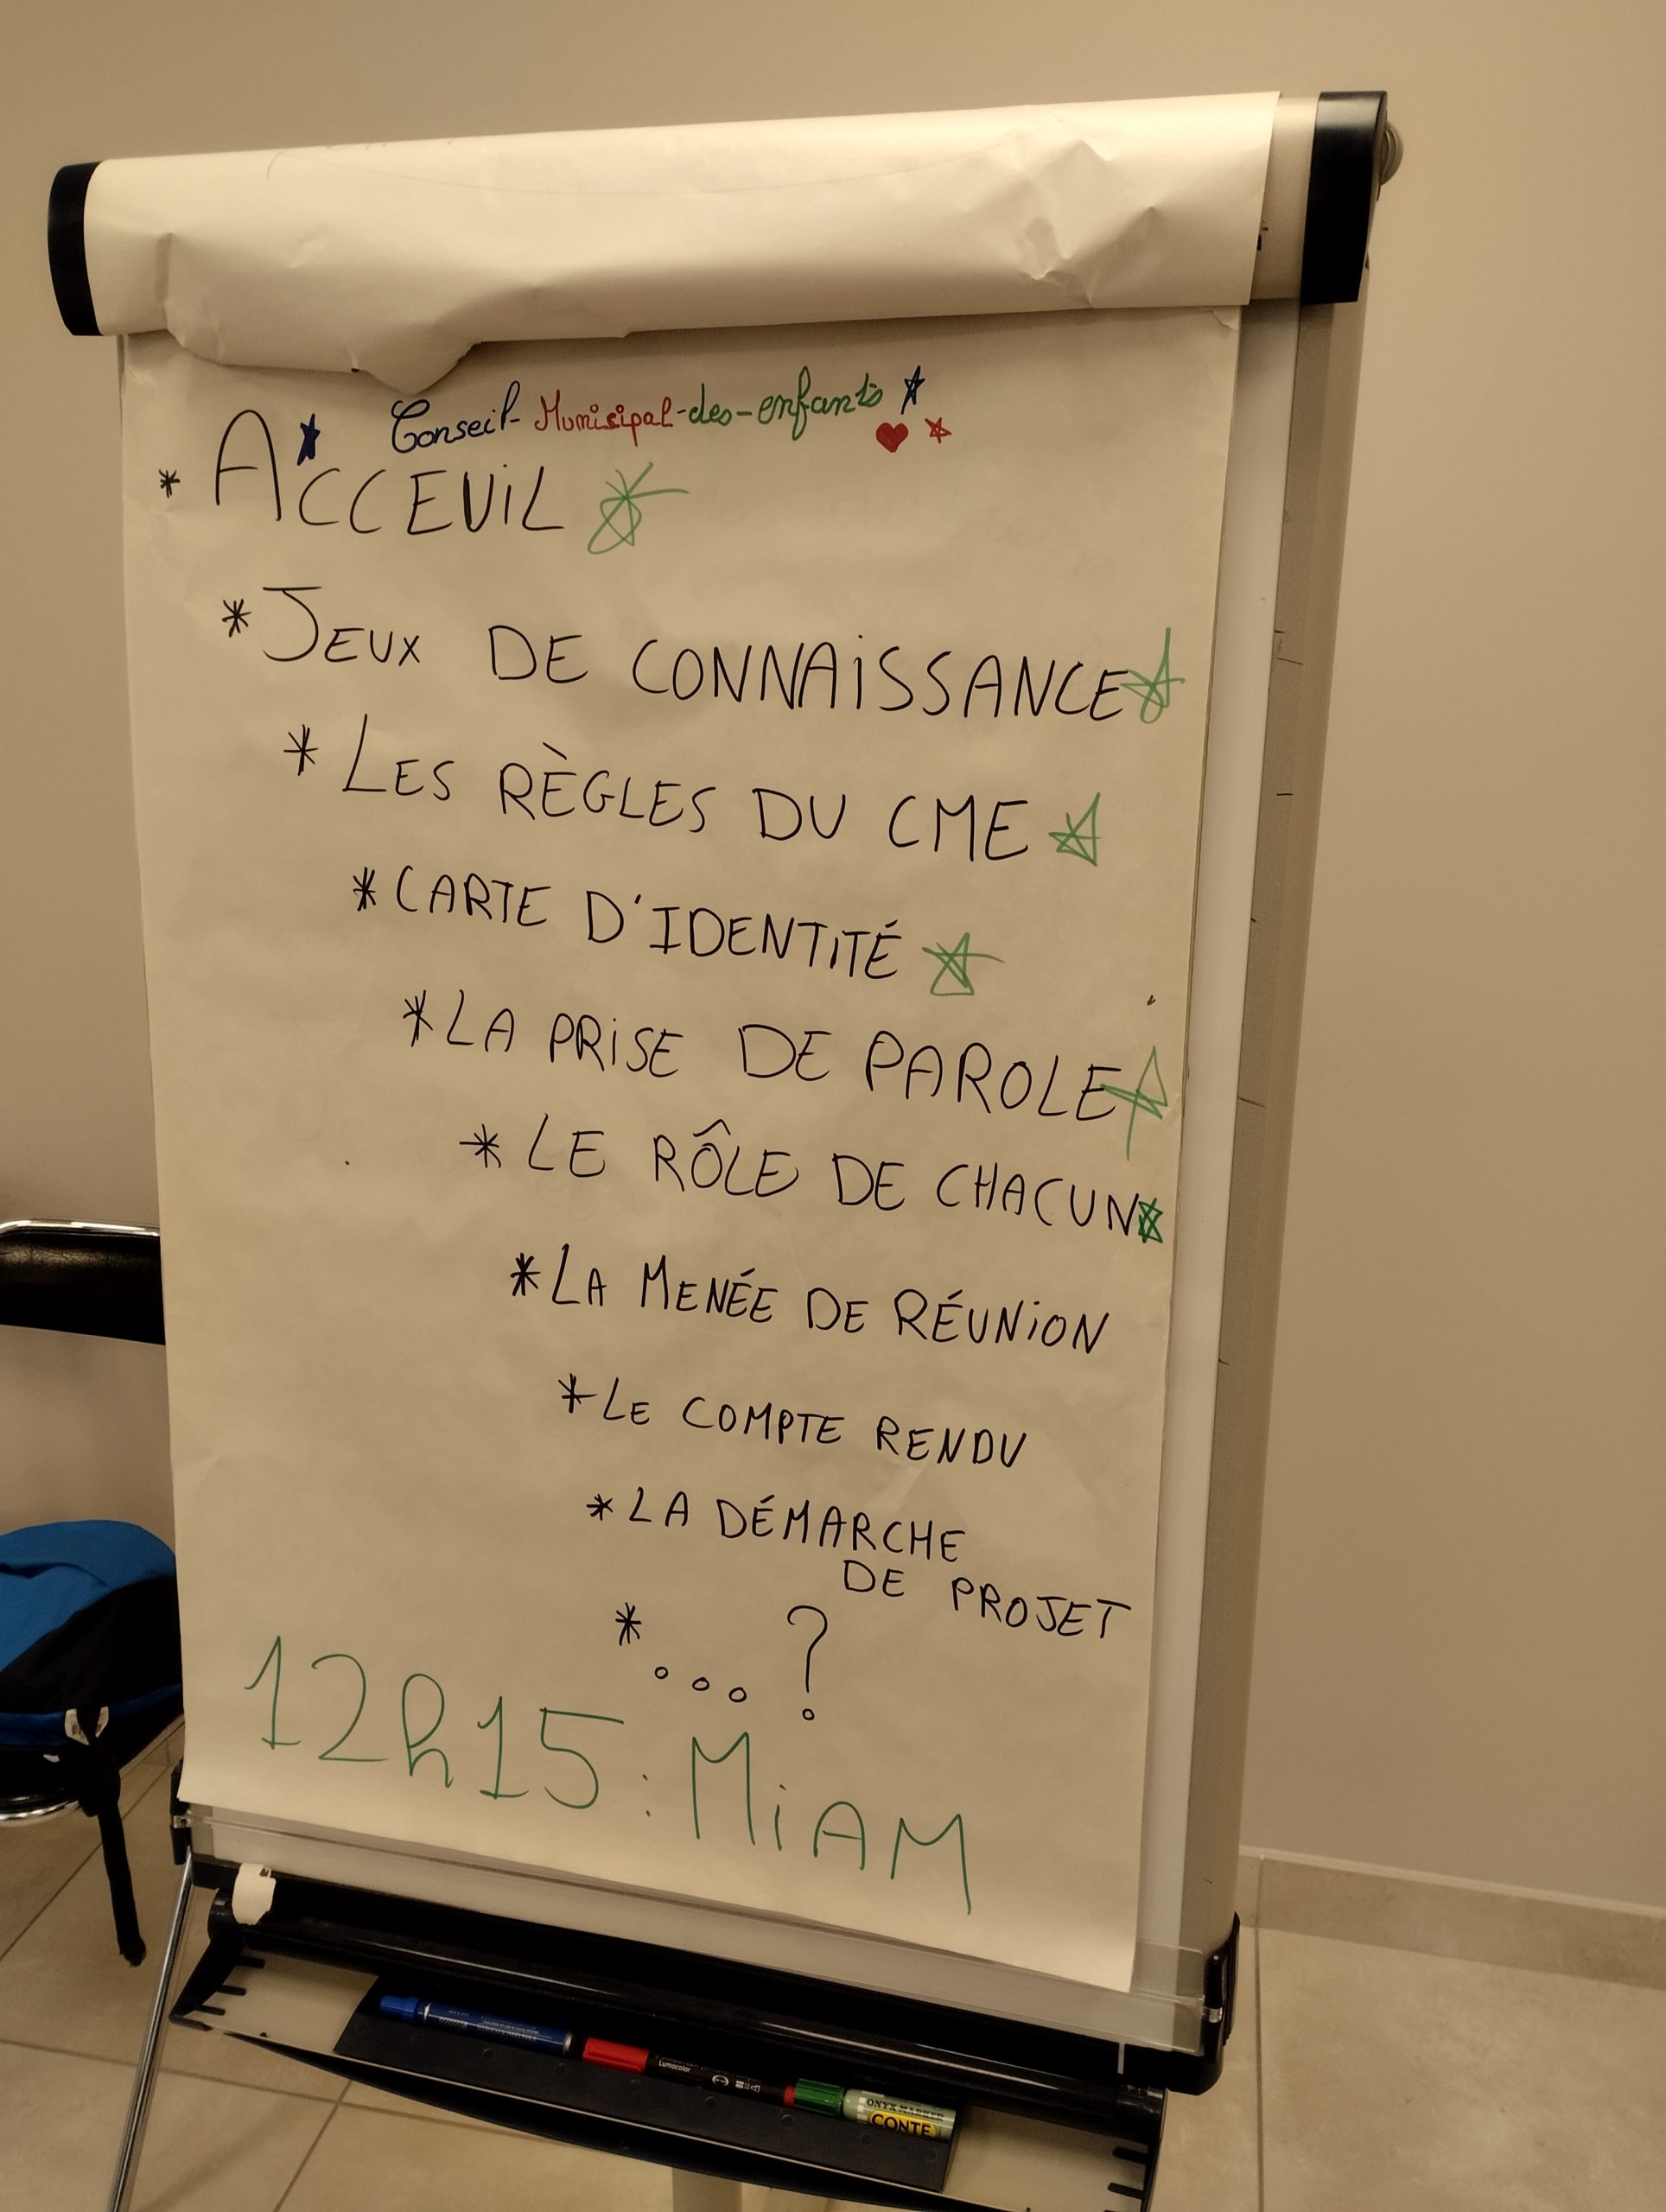 Conseil-Munisipal-des-enfants
* ACCEUIL
* JEUX DE CONNAISSANCE
* LES RÈGLES DU CME
* CARTE D'IDENTITÉ
* LA PRISE DE PAROLE
* LE RÔLE DE CHACUN
* LA MENÉE DE RÉUNION
* LE COMPTE RENDU
* LA DÉMARCHE
DE PROJET
* ... ?
12h15 : MIAM
Lumocolor
ONYX MARKER
CONTE